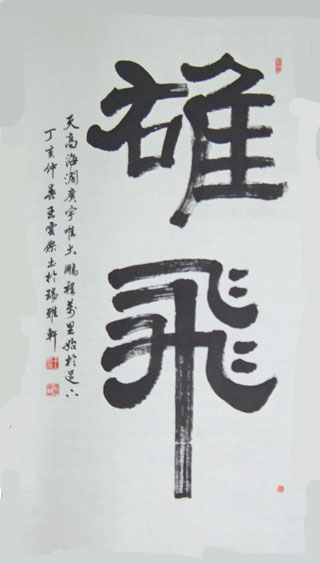 雄飛
天高海濶廣宇惟大鵬程萬里始於足下
丁亥仲春王雲傑書於瑞雅軒